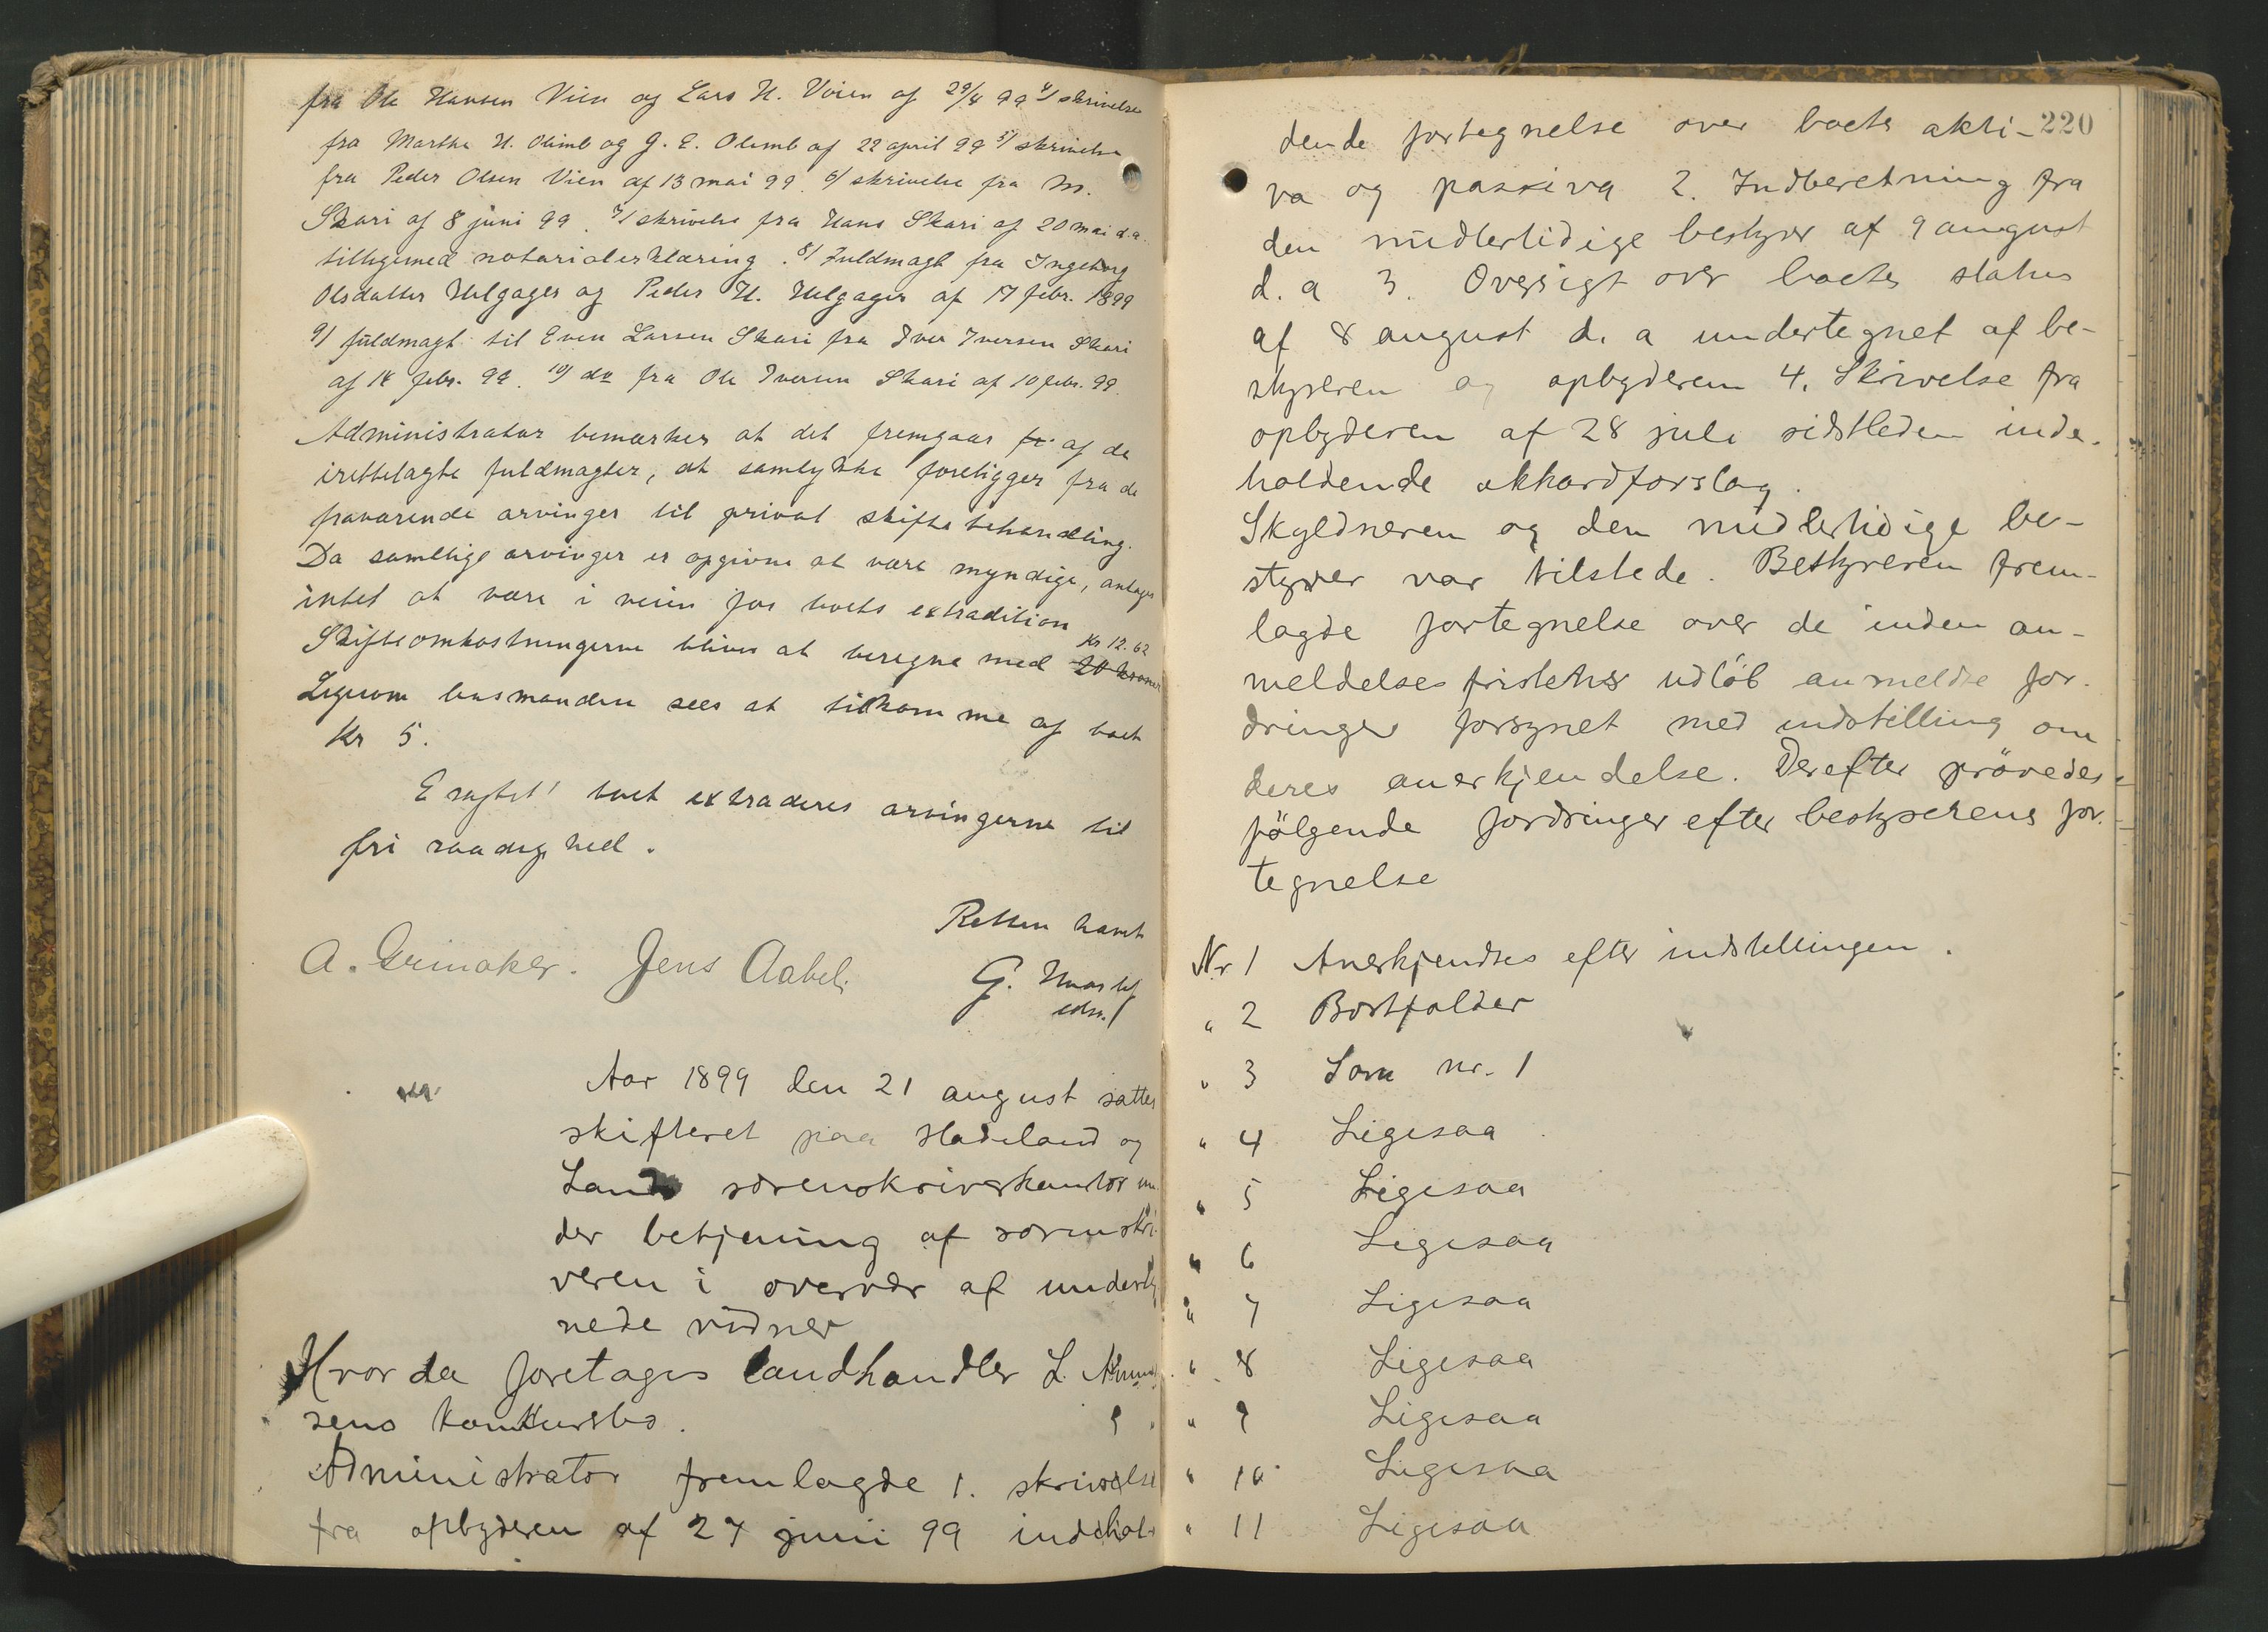 fra Ole Hansen Vien og Lars H. Voien af 29/4 99 4/ skrivelse
fra Marthe H. Olimb og G. E. Olimb af 22 april 99 5/ skrivelse
fra Peder Olsen Vien af 13 mai 99. 6/ skrivelse fra M.
Skari af 8 juni 99. 7/ skrivelse fra Hans Skari af 20 mai d.a.
tilligemed notarialerklæring. 8/ Fuldmagt fra Ingeborg
Olsdatter Helgager og Peder H. Helgager af 17 febr. 1899
9/ fuldmagt til Even Larsen Skari fra Iver Iversen Skari
af 14 febr. 99. 10/ do fra Ole Iversen Skari af 10 febr. 99.
Administrator bemærker at det fremgaar fr. af de
irettelagte fuldmagter, at samtykke foreligger fra de
fraværende arvinger til privat skiftebehandling.
Da samtlige arvinger er opgivne at være myndige, antages
intet at være i veien for boets extradition
Kr 12.62
Skifteomkostningerne bliver at beregne med 20 kroner
Ligesom lensmanden sees at tilkomme af boet
Kr 5.
Eragtet! boet extraderes arvingerne til
fri raadighed.
Retten hævet
A. Grinaker. Jens Aabel.
G.
Aar 1899 den 21 august sattes
skifteret paa Hadeland og
Lands sorenskriverkontor un-
der betjening af sorenskri-
veren i overvær af underteg
nede vidner
Hvor da foretages landhandler L.
sens konkursbo.
Administrator fremlagde 1. skrivelse
fra opbyderen af 27 juni 99 indehol-
220
dende fortegnelse over boets akti-
va og passiva 2. Indberetning fra
den midlertidige bestyrer af 9 august
d. a 3. Oversigt over boets status
af 8 august d. a undertegnet af be-
styreren og opbyderen 4. Skrivelse fra
opbyderen af 28 juli sidstleden inde-
holdende akkordforslag.
Skyldneren og den midlertidige be-
styrer var tilstede. Bestyreren frem-
lagde fortegnelse over de inden an-
meldelsesfristens udløb anmeldte for-
dringer forsynet med indstilling om
deres anerkjendelse. Derefter prövedes
fölgende fordringer efter bestyrerens for-
tegnelse
Nr 1 Anerkjendtes efter indstillingen.
" 2 Bortfalder
" 3 Som nr. 1
" 4 Ligesaa
" 5 Ligesaa
" 6 Ligesaa
" 7 Ligesaa
" 8 Ligesaa
" 9 Ligesaa
" 10 Ligesaa
" 11 Ligesaa